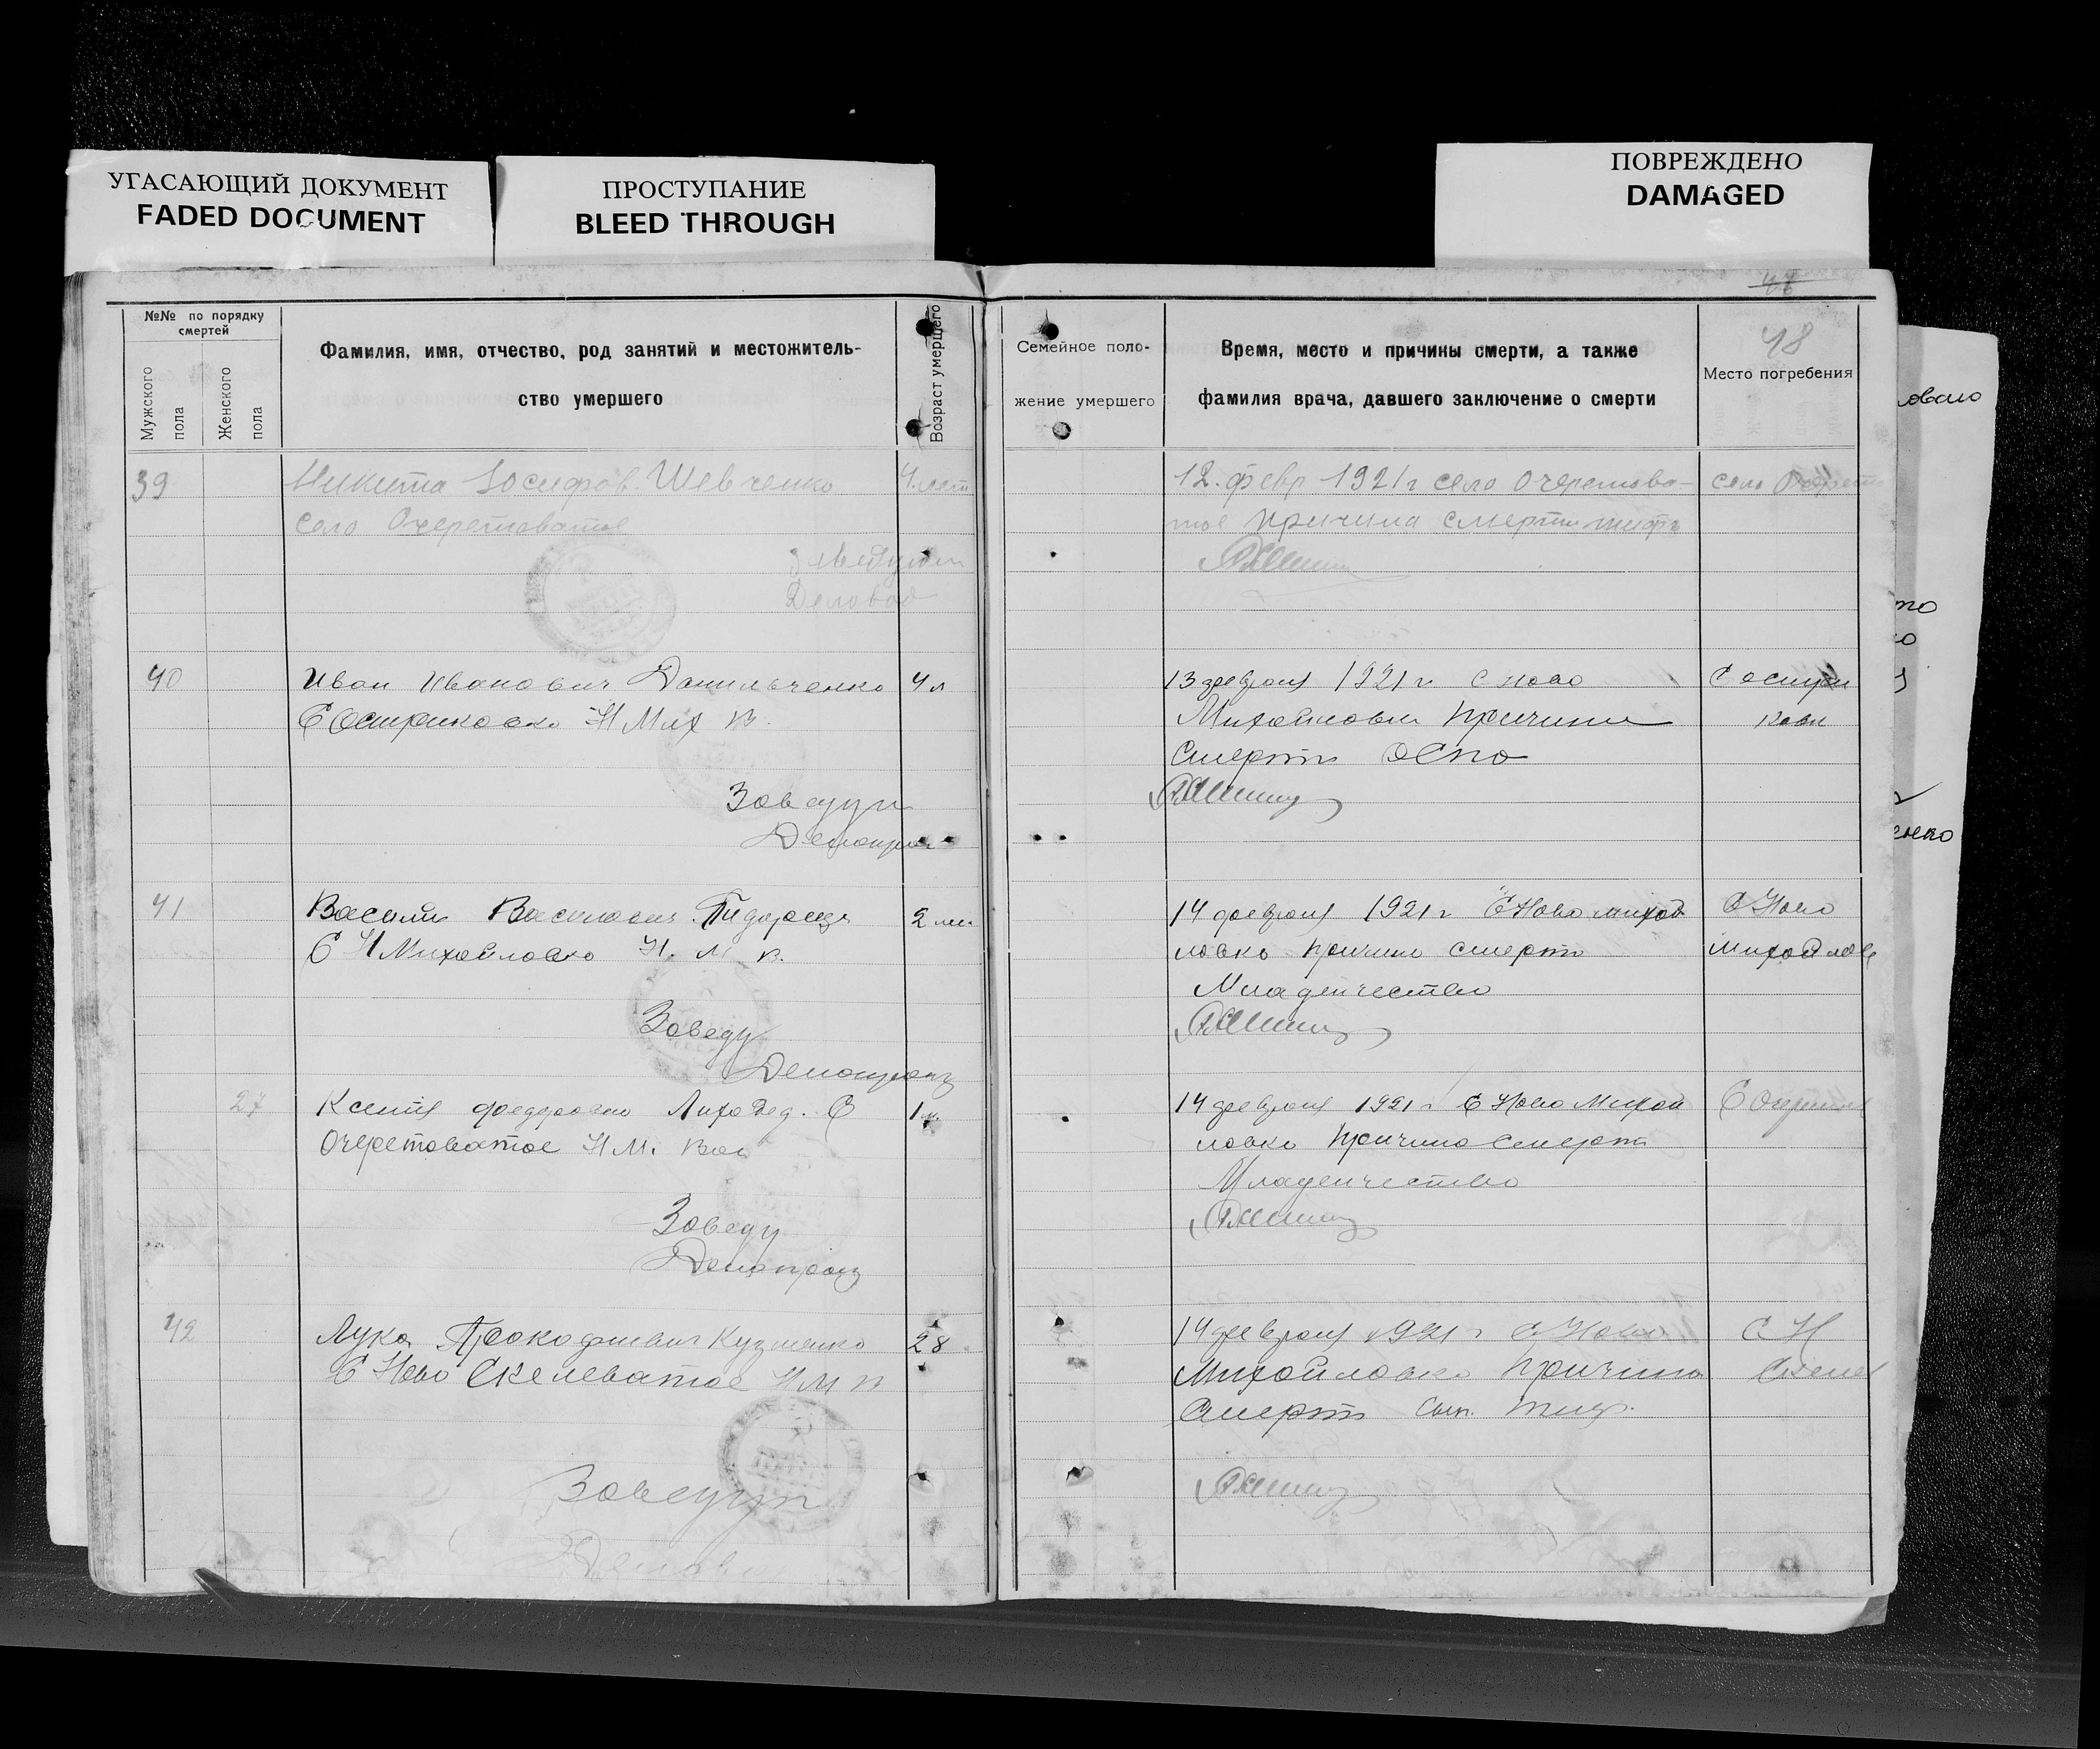 УГАСАЮЩИЙ ДОКУМЕНТ
FADED DOCUMENT
ПРОСТУПАНИЕ
BLEED THROUGH
ПОВРЕЖДЕНО
DAMAGED
48
№№ по порядку
смертей
Мужского
пола
Женского
пола
Фамилия, имя, отчество, род занятий и местожитель-
ство умершего
Возраст умершего
Семейное поло-
жение умершего
Время, место и причины смерти, а также
фамилия врача, давшего заключение о смерти
Место погребения
39
Никита Іосифов. Шевченко
село Очеретоватое
4. лет
12. февр 1921 г село Очеретова-
тое причина смерти тифъ
село
40
Иван Иванович Данильченко
С Остриковка Н Мих в.
4 л
Заведущ
Делопр
13 февраля 1921 г С Ново
Михайловка причина
смерти оспа
С Остри
ковки
41
Василий Васильевич
С Н Михайловка Н. М в.
2
Заведу
Делопроиз
14 февраля 1921 г С Ново михай
ловка причина смерти
Младенчество
С Ново
Михайлов
27
Ксения Федоровна Лиходед. С
Очеретоватое Н М. вол
1
Заведу
Делопроиз
14 февраля 1921 г С Ново Михай
ловка причина смерти
Младенчество
42
Лука Прокофиевич Кузменко
С Ново Скелеватое Н М в
28
Заведущ
Делово
14 февраля 1921 г С Ново
Михайловка причина
смерти Сып. тиф.
С Н
Скелев